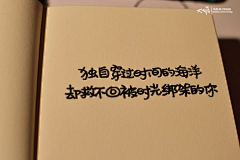 独自穿过时间的海洋
却救不回被时光绑架的你